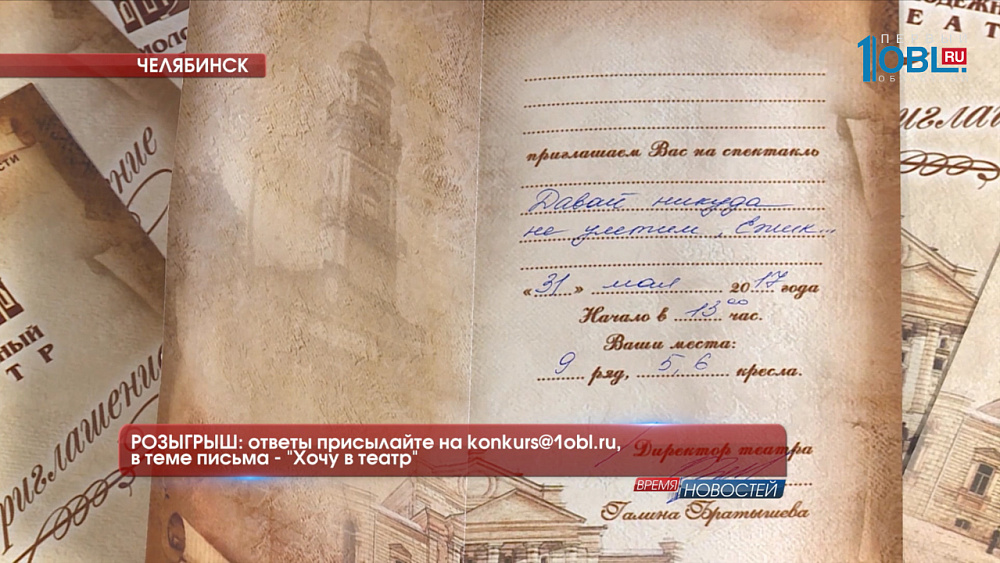 ЧЕЛЯБИНСК
1OBL.RU
приглашение
приглашаем Вас на спектакль
Давай никуда
не улетим, Ёжик...
«31» мая 2017 года
Начало в 13 00 час.
Ваши места:
9 ряд, 5, 6 кресла.
РОЗЫГРЫШ: ответы присылайте на konkurs@1obl.ru,
в теме письма - "Хочу в театр"
Директор театра
ВРЕМЯ НОВОСТЕЙ
Галина Братышева